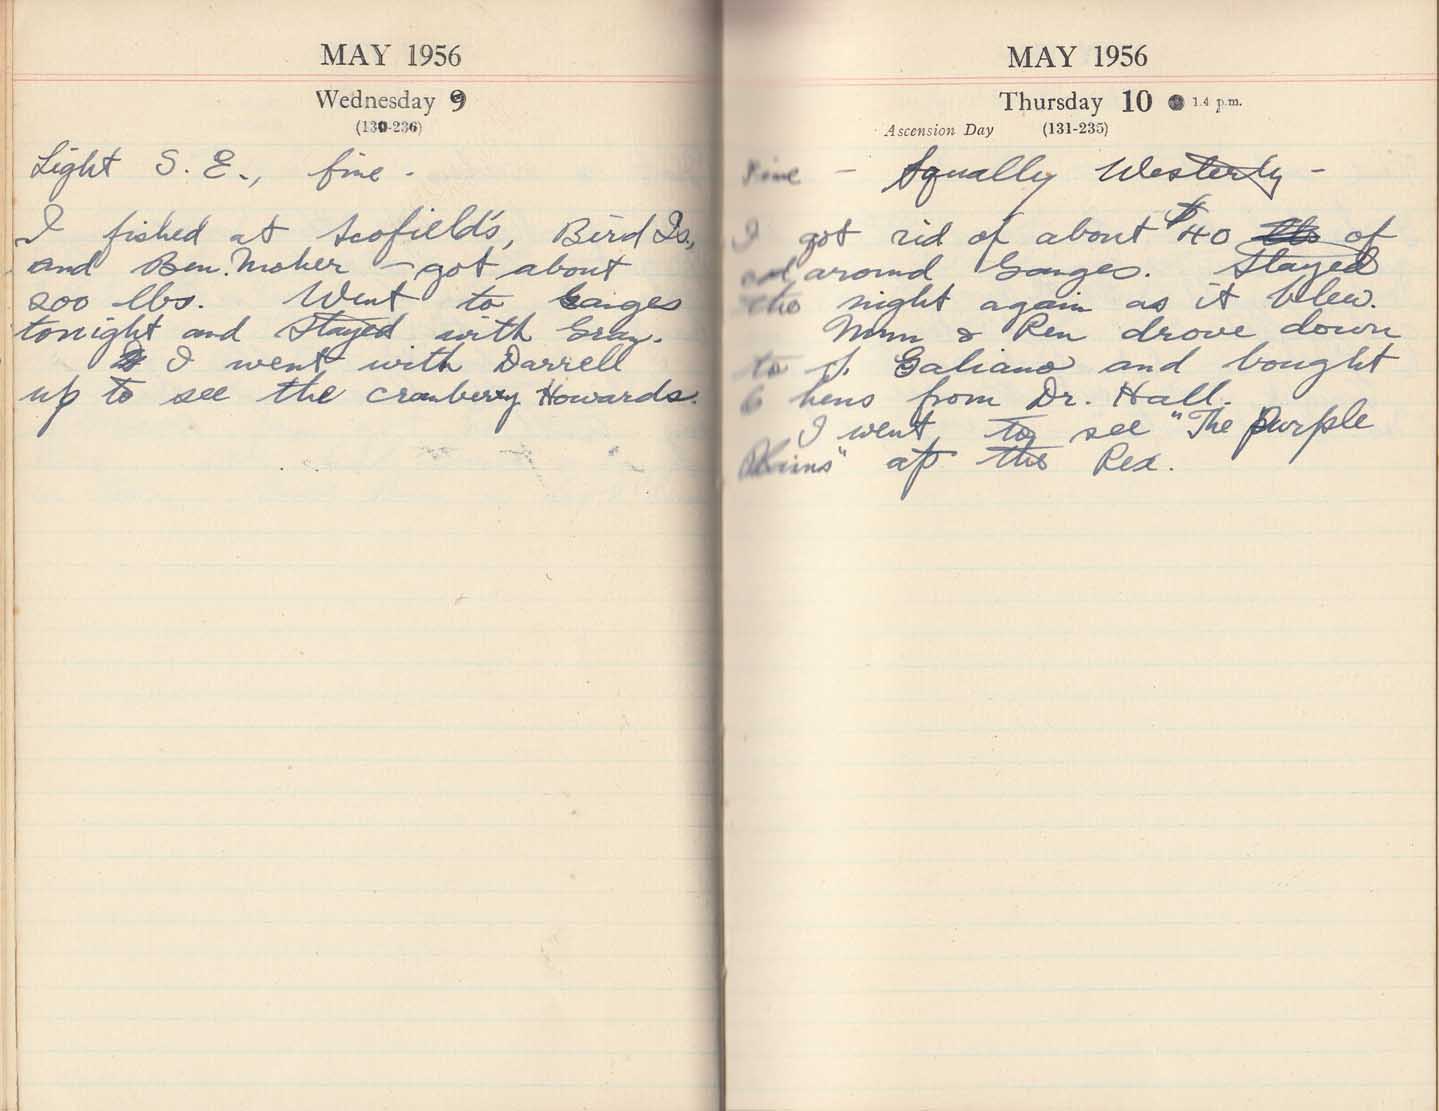 MAY 1956
Wednesday 9
(130-236)
Light S. E., fine -
I fished at Scofield's, Bird Is,
and Ben. Moher - got about
200 lbs. Went to Ganges
tonight and stayed with Gray.
I went with Darrell
up to see the cranberry Howards.
MAY 1956
Thursday 10 ● 1.4 p.m.
Ascension Day (131-235)
Fine - Squally Westerly -
I got rid of about $40 lbs of
cod around Ganges. Stayed
the night again as it blew.
Mum & Ren drove down
to S. Galiano and bought
6 hens from Dr. Hall.
I went to see "The Purple
Plains" at the Rex.